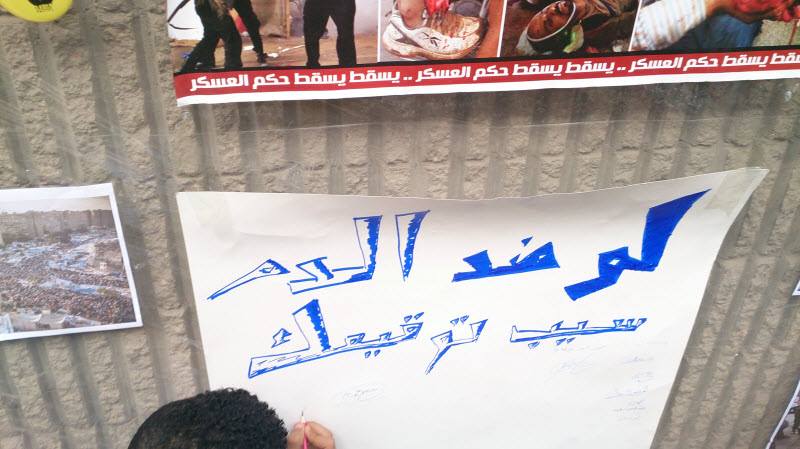 يسقط يسقط حكم العسكر .. يسقط يسقط حكم العسكر .. يسقط يسقط حكم العسكر
لو ضد الدم
سيب توقيعك